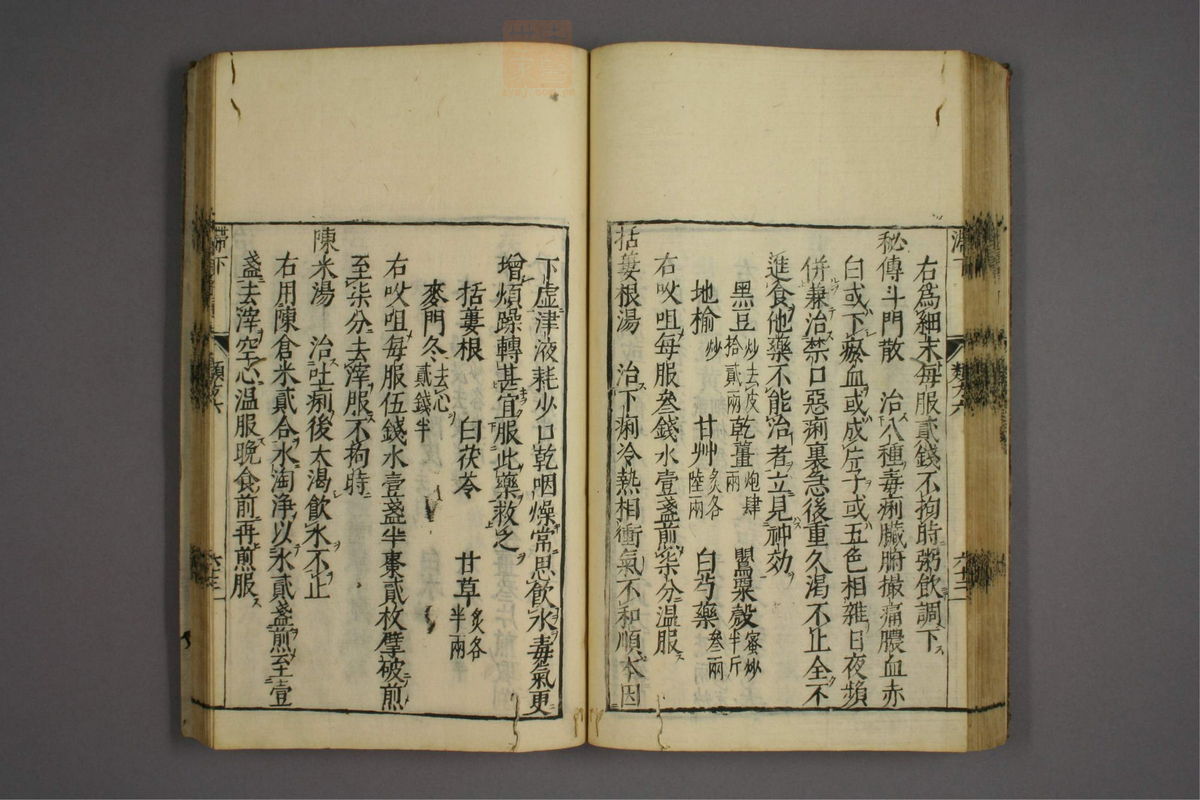 右爲細末每服貳錢不拘時粥飲調下
秘傳斗門散　治八種毒痢臟腑撮痛膿血赤
白或下瘀血或成片子或五色相雜日夜頻
併兼治禁口惡痢裏急後重久渴不止全不
進食他藥不能治者立見神効
黑豆炒去皮拾貳兩　乾薑炮肆兩　罌粟殼蜜炒半斤
地榆炒　甘艸炙各陸兩　白芍藥叁兩
右㕮咀每服叁錢水壹盞煎柒分温服
括蔞根湯　治下痢冷熱相衝氣不和順本因
下虛津液耗少口乾咽燥常思飲水毒氣更
增煩躁轉甚宜服此藥救之
括蔞根　白茯苓　甘草炙各半兩
麥門冬去心貳錢半
右㕮咀每服伍錢水壹盞半棗貳枚擘破煎
至柒分去滓服不拘時
陳米湯　治吐痢後大渴飲水不止
右用陳倉米貳合水淘淨以水貳盞煎至壹
盞去滓空心温服晚食前再煎服
滯下
六